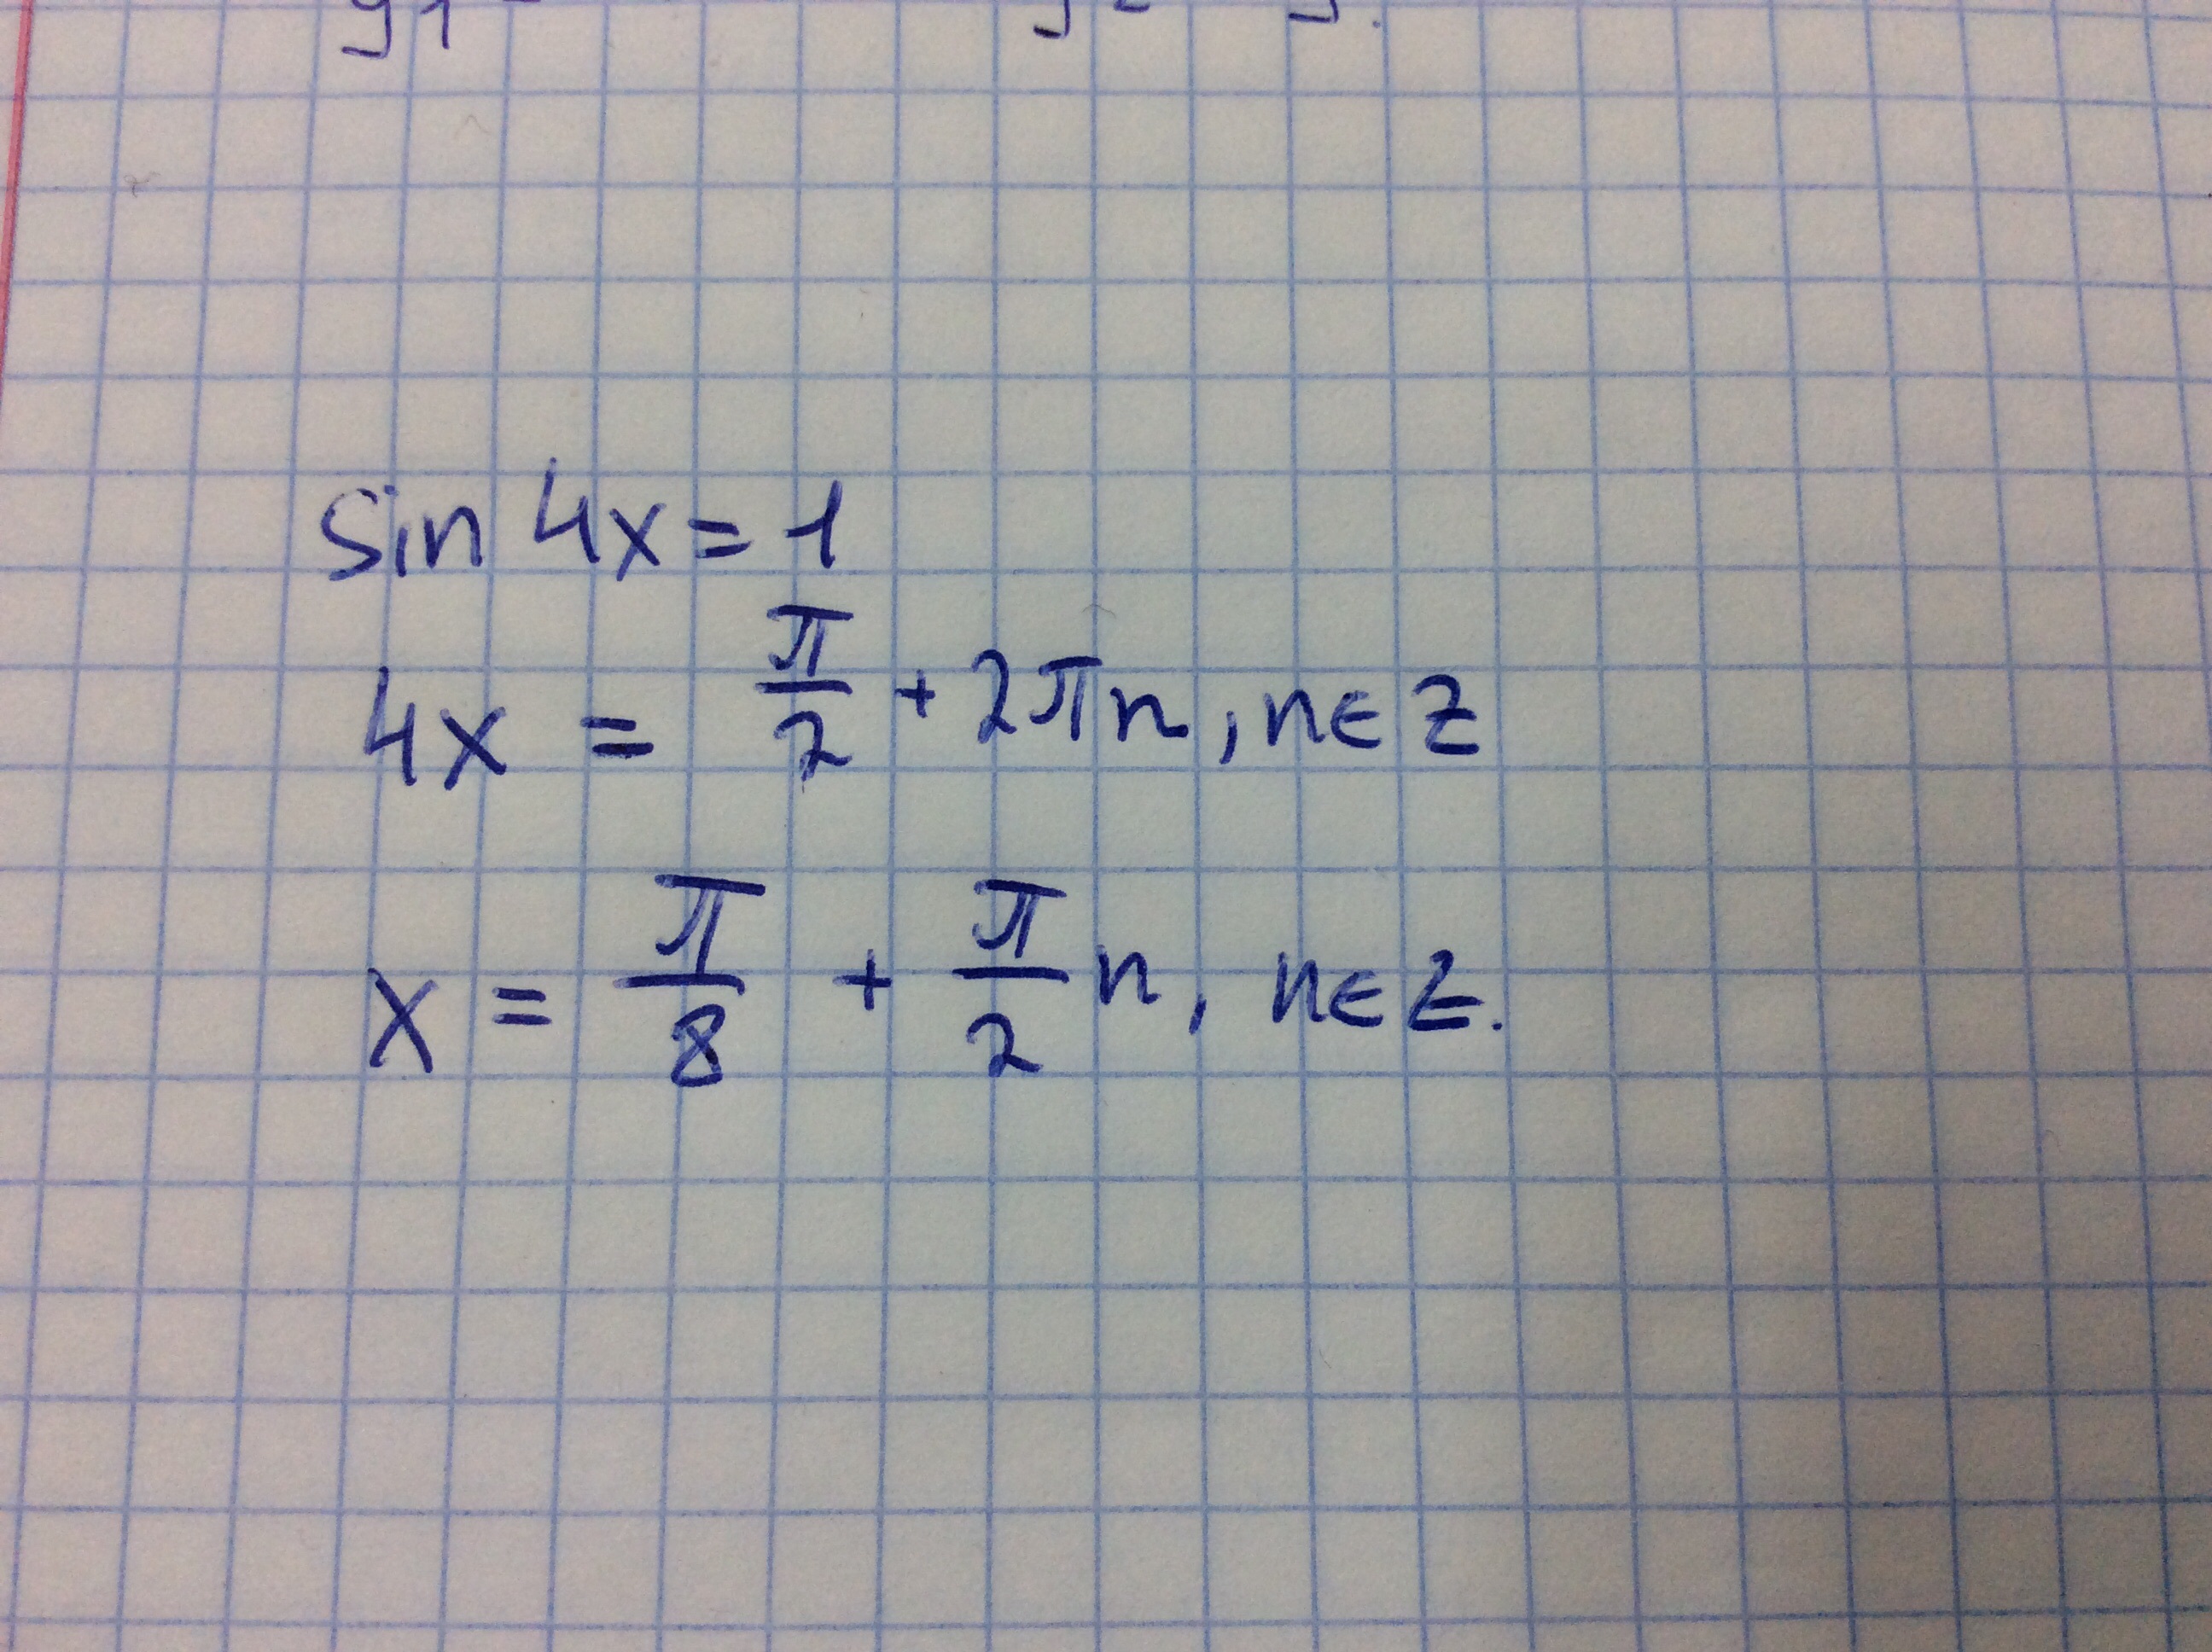 sin 4x = 1
4x = π/2 + 2πn, n ∈ Z
x = π/8 + π/2 n, n ∈ Z.